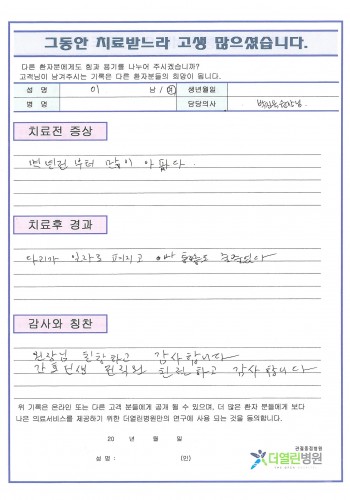 그동안 치료받느라 고생 많으셨습니다.
다른 환자분에게도 힘과 용기를 나누어 주시겠습니까?
고객님이 남겨주시는 기록은 다른 환자분들의 희망이 됩니다.
성 명 이 남 / 여 생년월일
병 명 담당의사 원장님
치료전 증상
몇년전부터 많이 아팠다.
치료후 경과
다리가 일자로 펴지고
감사와 칭찬
원장님 친창하고 감사합니다
간호선생 친절하고 감사합니다
위 기록은 온라인 또는 다른 고객 분들에게 공개 될 수 있으며, 더 많은 환자 분들에게 보다
나은 의료서비스를 제공하기 위한 더열린병원만의 연구에 사용 되는 것을 동의합니다.
20 년 월 일
성 명 : (인)
관절중점병원
더열린병원